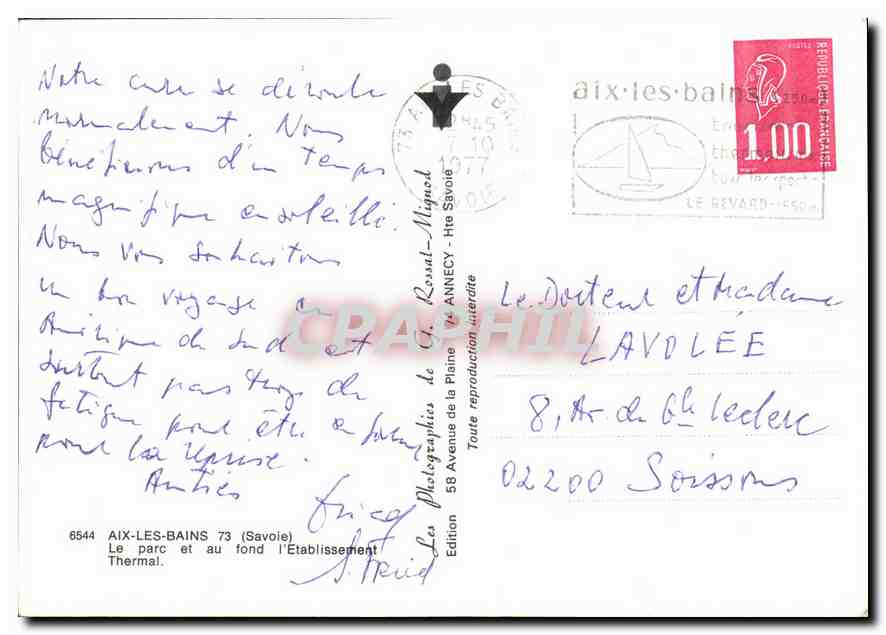 Notre cure se déroule
normalement. Nous
bénéficions d'un temps
magnifique ensoleillé.
Nous vous souhaitons
un bon voyage en
Amérique du Sud et
surtout pas trop de
fatigue pour être en forme
pour la reprise.
Amitiés
6544 AIX-LES-BAINS 73 (Savoie)
Le parc et au fond l'Etablissement
Thermal.
Les Photographies de G. Rossat-Mignod
Edition 58 Avenue de la Plaine 74 ANNECY - Hte Savoie
Toute reproduction interdite
CPAPHIL
73 AIX LES BAINS
7-10
1977
SAVOIE
aix·les·bains
LE REVARD-1550m
POSTES
REPUBLIQUE FRANÇAISE
1,00
Le Docteur et Madame
LAVOLÉE
8, Av. du Gl Leclerc
02200 Soissons